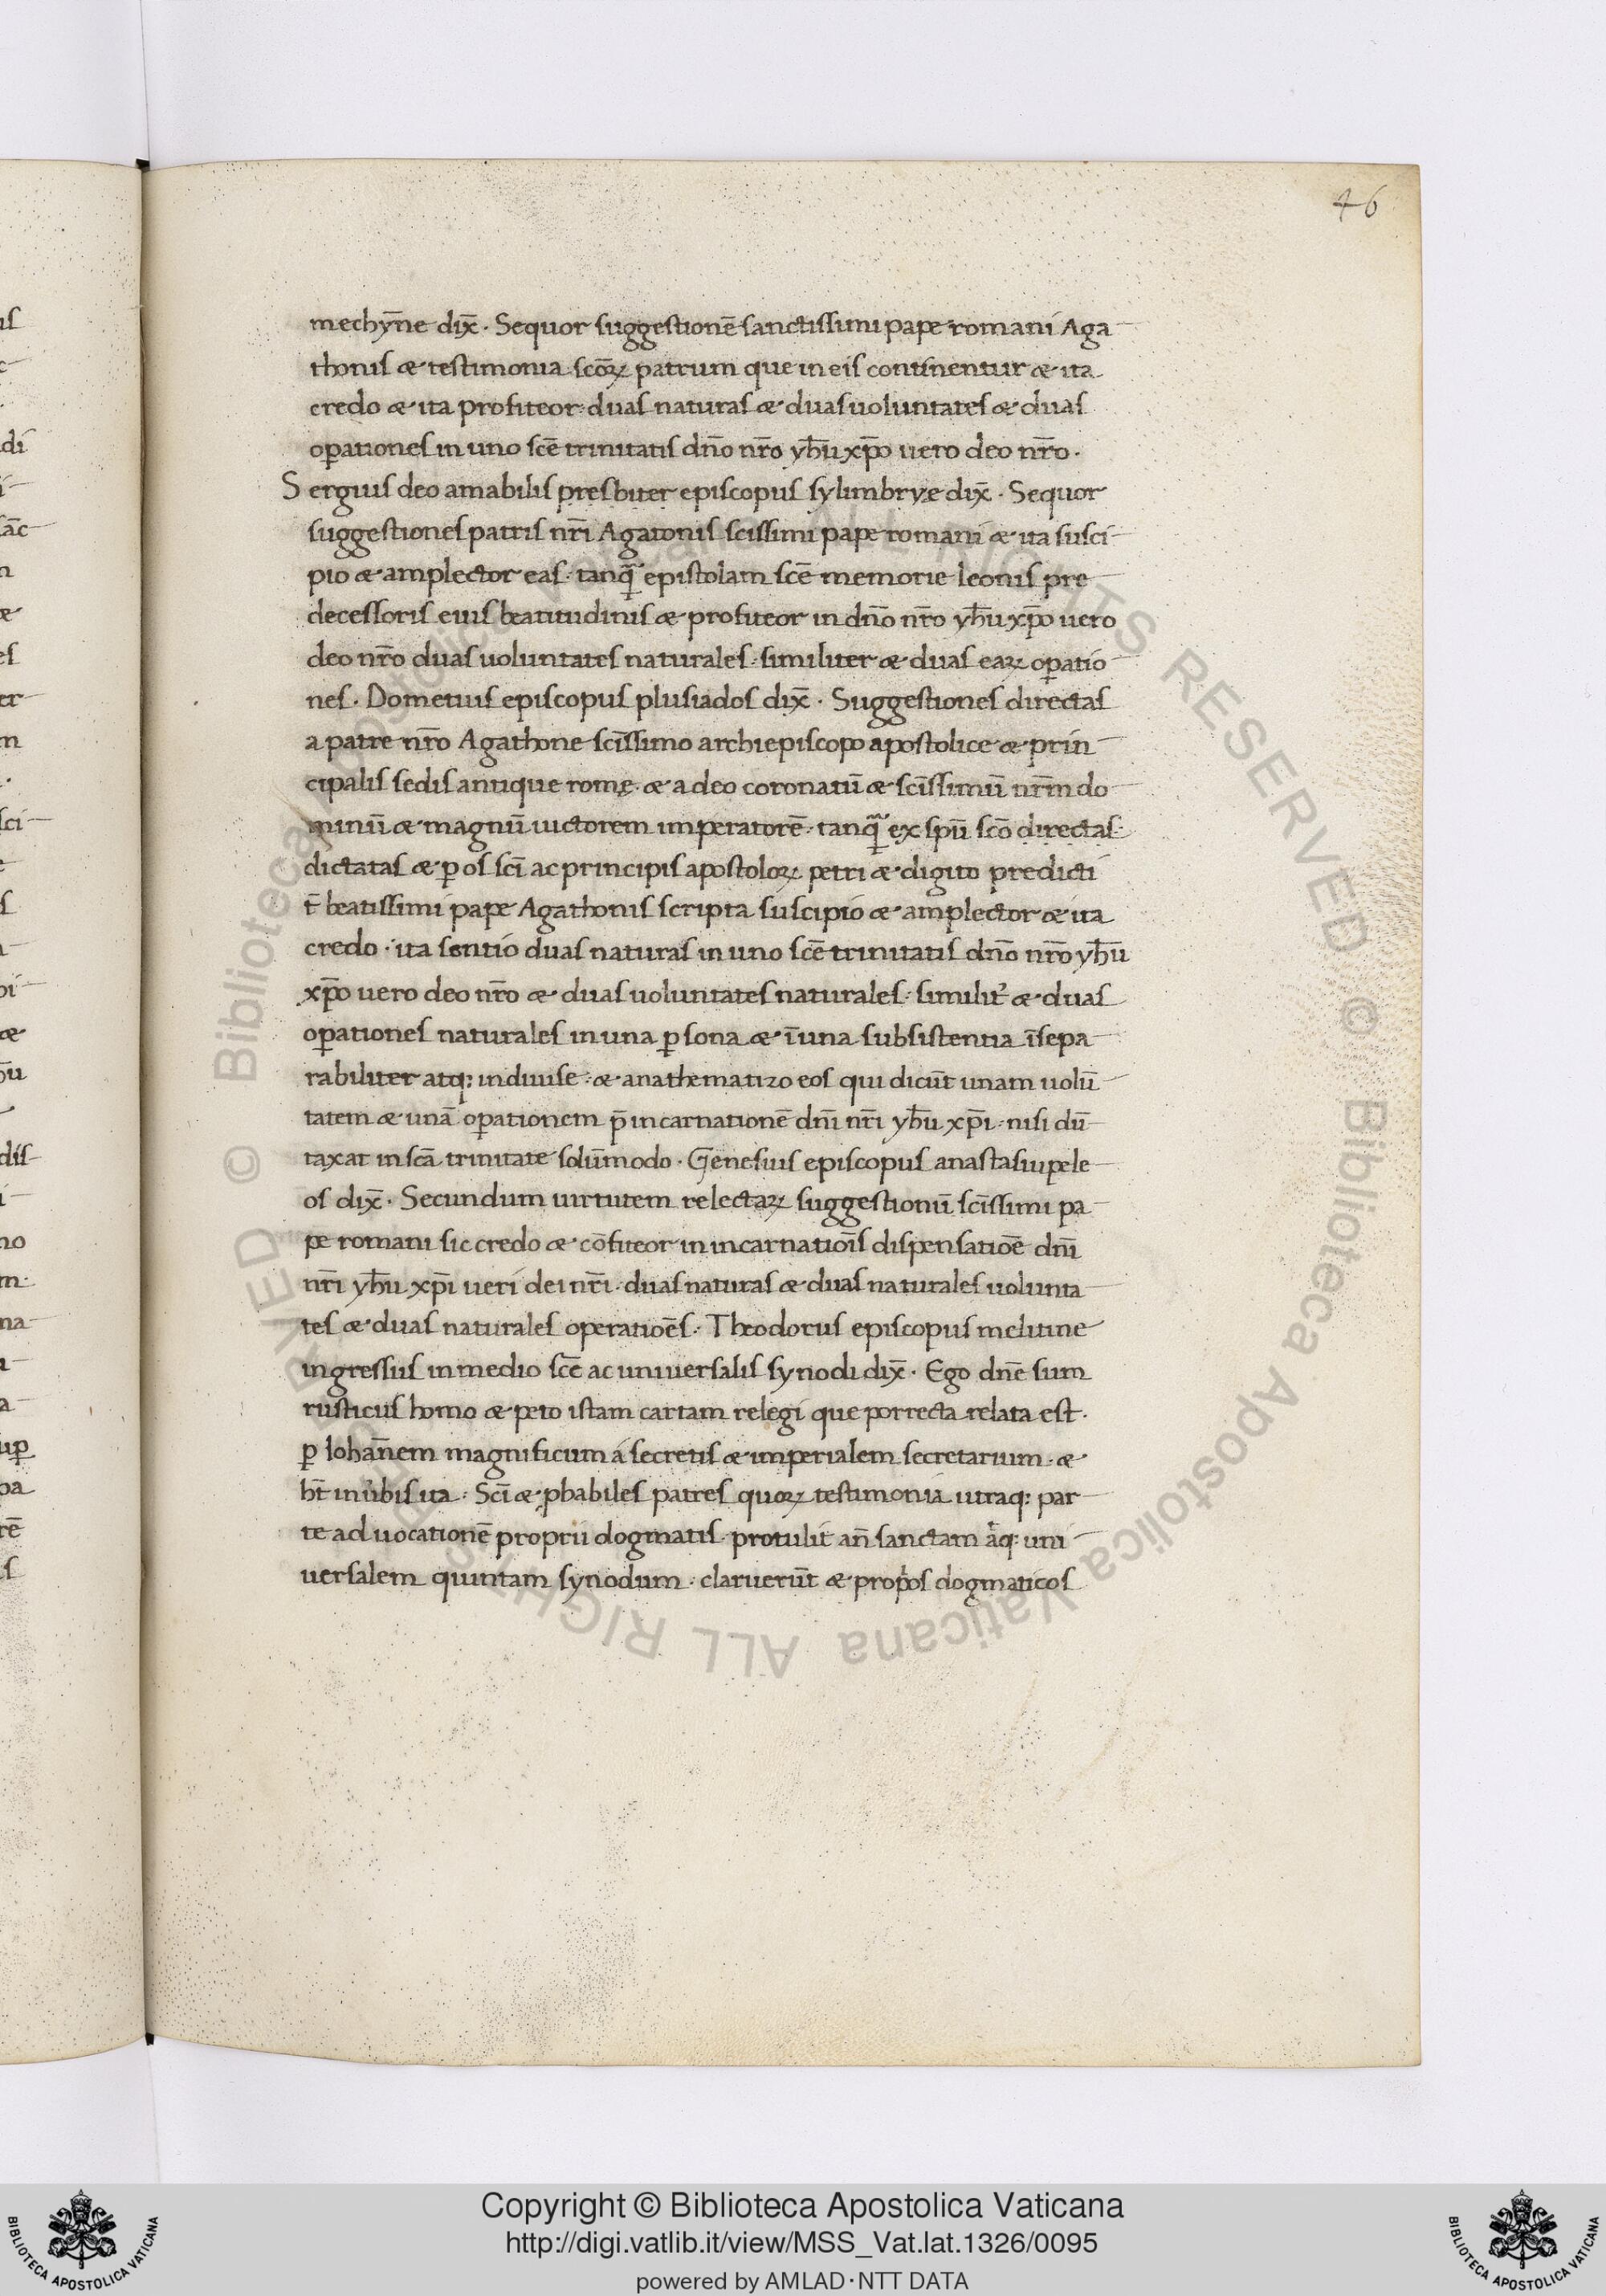 46
mechyn̄e dix̄. Sequor suggestionē sanctissimi pape romani Aga
thonis & testimonia scōꝝ patrum que in eis continentur & ita
credo & ita profiteor. duas naturas & duas uoluntates & duas
oꝑationes in uno scē trinitatis dn̄o nr̄o yħū xp̄o uero deo nr̄o.
Sergius deo amabilis presbiter episcopus sylimbryę dix̄. Sequor
suggestiones patris nr̄i Agatonis scissimi pape romani & ita susci
pio & amplector eas. tanq̄ epistolam scē memorie leonis pre
decessoris eius beatitudinis & profiteor in dn̄o nr̄o yħū xp̄o uero
deo nr̄o duas uoluntates naturales. similiter & duas eaꝝ oꝑatio
nes. Dometius episcopus plusiados dix̄. Suggestiones directas
a patre nr̄o Agathone scīssimo archiepiscopo apostolice & prin
cipalis sedis antique romę. & a deo coronatū & scīssimū nr̄m do
minū & magnū uictorem imperatorē. tanq̄ ex spū scō directas.
dictatas & ꝑ os scī ac principis apostoloꝝ petri & digito predicti
t̄ beatissimi pape Agathonis scripta suscipio & amplector & ita
credo. ita sentio duas naturas in uno scē trinitatis dn̄o nr̄o yħū
xp̄o uero deo nr̄o & duas uoluntates naturales. similit̛ & duas
oꝑationes naturales in una ꝑsona & ī una subsistentia īsepa
rabiliter atq: indiuise. & anathematizo eos qui dicūt unam uolū
tatem & unā oꝑationem p̄ incarnationē dn̄i nr̄i yħū xp̄i. nisi dū
taxat in scā trinitate solūmodo. Genesius episcopus anastasiupele
os dix̄. Secundum uirtutem relectaꝝ suggestionū scīssimi pa
pe romani sic credo & cōfiteor in incarnatiōis dispensatiōe dn̄i
nr̄i yħū xp̄i ueri dei nr̄i. duas naturas & duas naturales uolunta
tes & duas naturales operatiōes. Theodorus episcopus melitine
ingressus in medio scē ac uniuersalis synodi dix̄. Ego dn̄e sum
rusticus homo & peto istam cartam relegi que porrecta relata est.
ꝑ Iohān̄em magnificum á secretis & imperialem secretarium. &
ħt in ůbis ita. Scī & ꝓbabiles patres quoꝝ testimonia utraq: par
te aduocationē proprii dogmatis protulit an̄ sanctam åq: uni
uersalem quintam synodum. claruerūt & propos dogmaticos
Copyright © Biblioteca Apostolica Vaticana
http://digi.vatlib.it/view/MSS_Vat.lat.1326/0095
powered by AMLAD·NTT DATA
BIBLIOTECA APOSTOLICA VATICANA
BIBLIOTECA APOSTOLICA VATICANA
© Biblioteca Apostolica Vaticana ALL RIGHTS RESERVED © Biblioteca Apostolica Vaticana ALL RIGHTS RESERVED